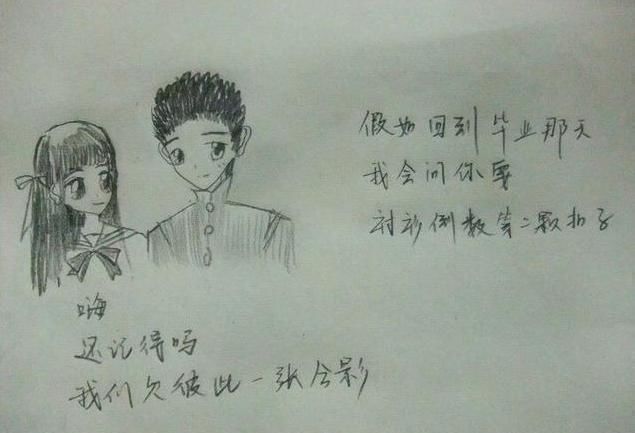 假如回到毕业那天
我会问你要
衬衫倒数第二颗扣子
嗨
还记得吗
我们欠彼此一张合影